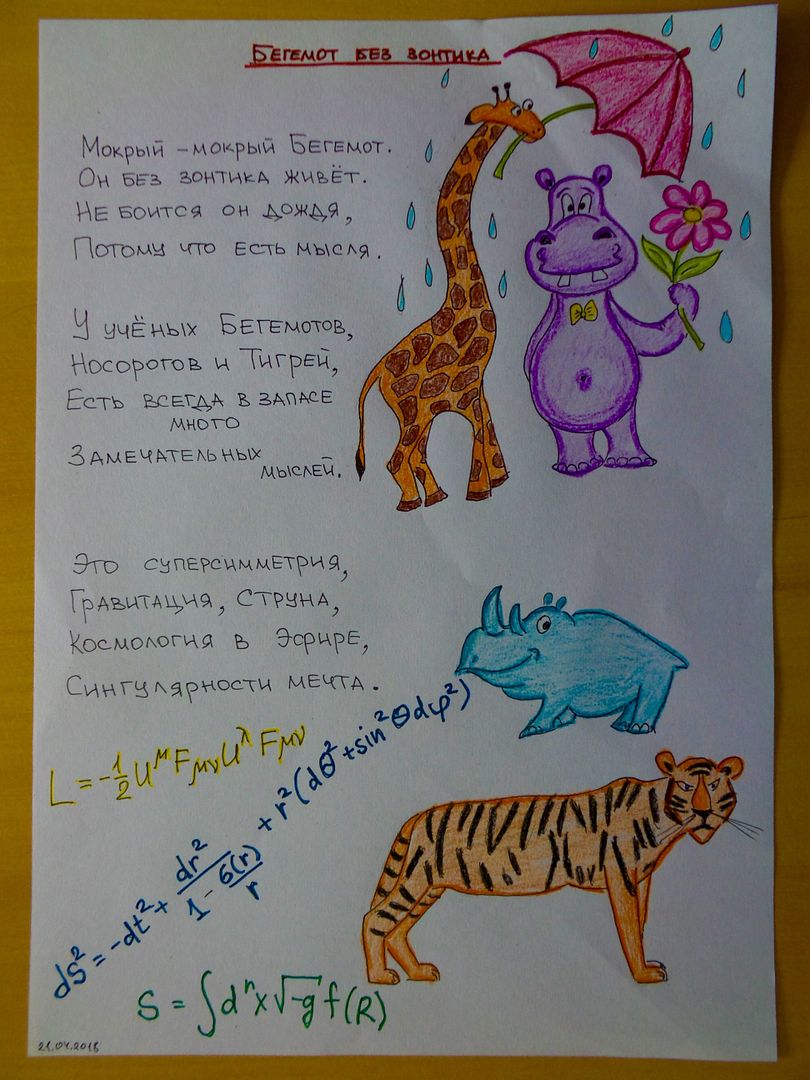 БЕГЕМОТ БЕЗ ЗОНТИКА
МОКРЫЙ – МОКРЫЙ БЕГЕМОТ.
ОН БЕЗ ЗОНТИКА ЖИВЁТ.
НЕ БОИТСЯ ОН ДОЖДЯ,
ПОТОМУ ЧТО ЕСТЬ МЫСЛЯ.
У УЧЁНЫХ БЕГЕМОТОВ,
НОСОРОГОВ И ТИГРЕЙ,
ЕСТЬ ВСЕГДА В ЗАПАСЕ
МНОГО
ЗАМЕЧАТЕЛЬНЫХ
МЫСЛЕЙ.
ЭТО СУПЕРСИММЕТРИЯ,
ГРАВИТАЦИЯ, СТРУНА,
КОСМОЛОГИЯ В ЭФИРЕ,
СИНГУЛЯРНОСТИ МЕЧТА.
L = -1/2 U^μ F_μν U^λ F_μν
dS² = -dt² + dr²/(1 - б(r)/r) + r²(dθ² + sin²θdφ²)
S = ∫dⁿx√-g f(R)
21.04.2018